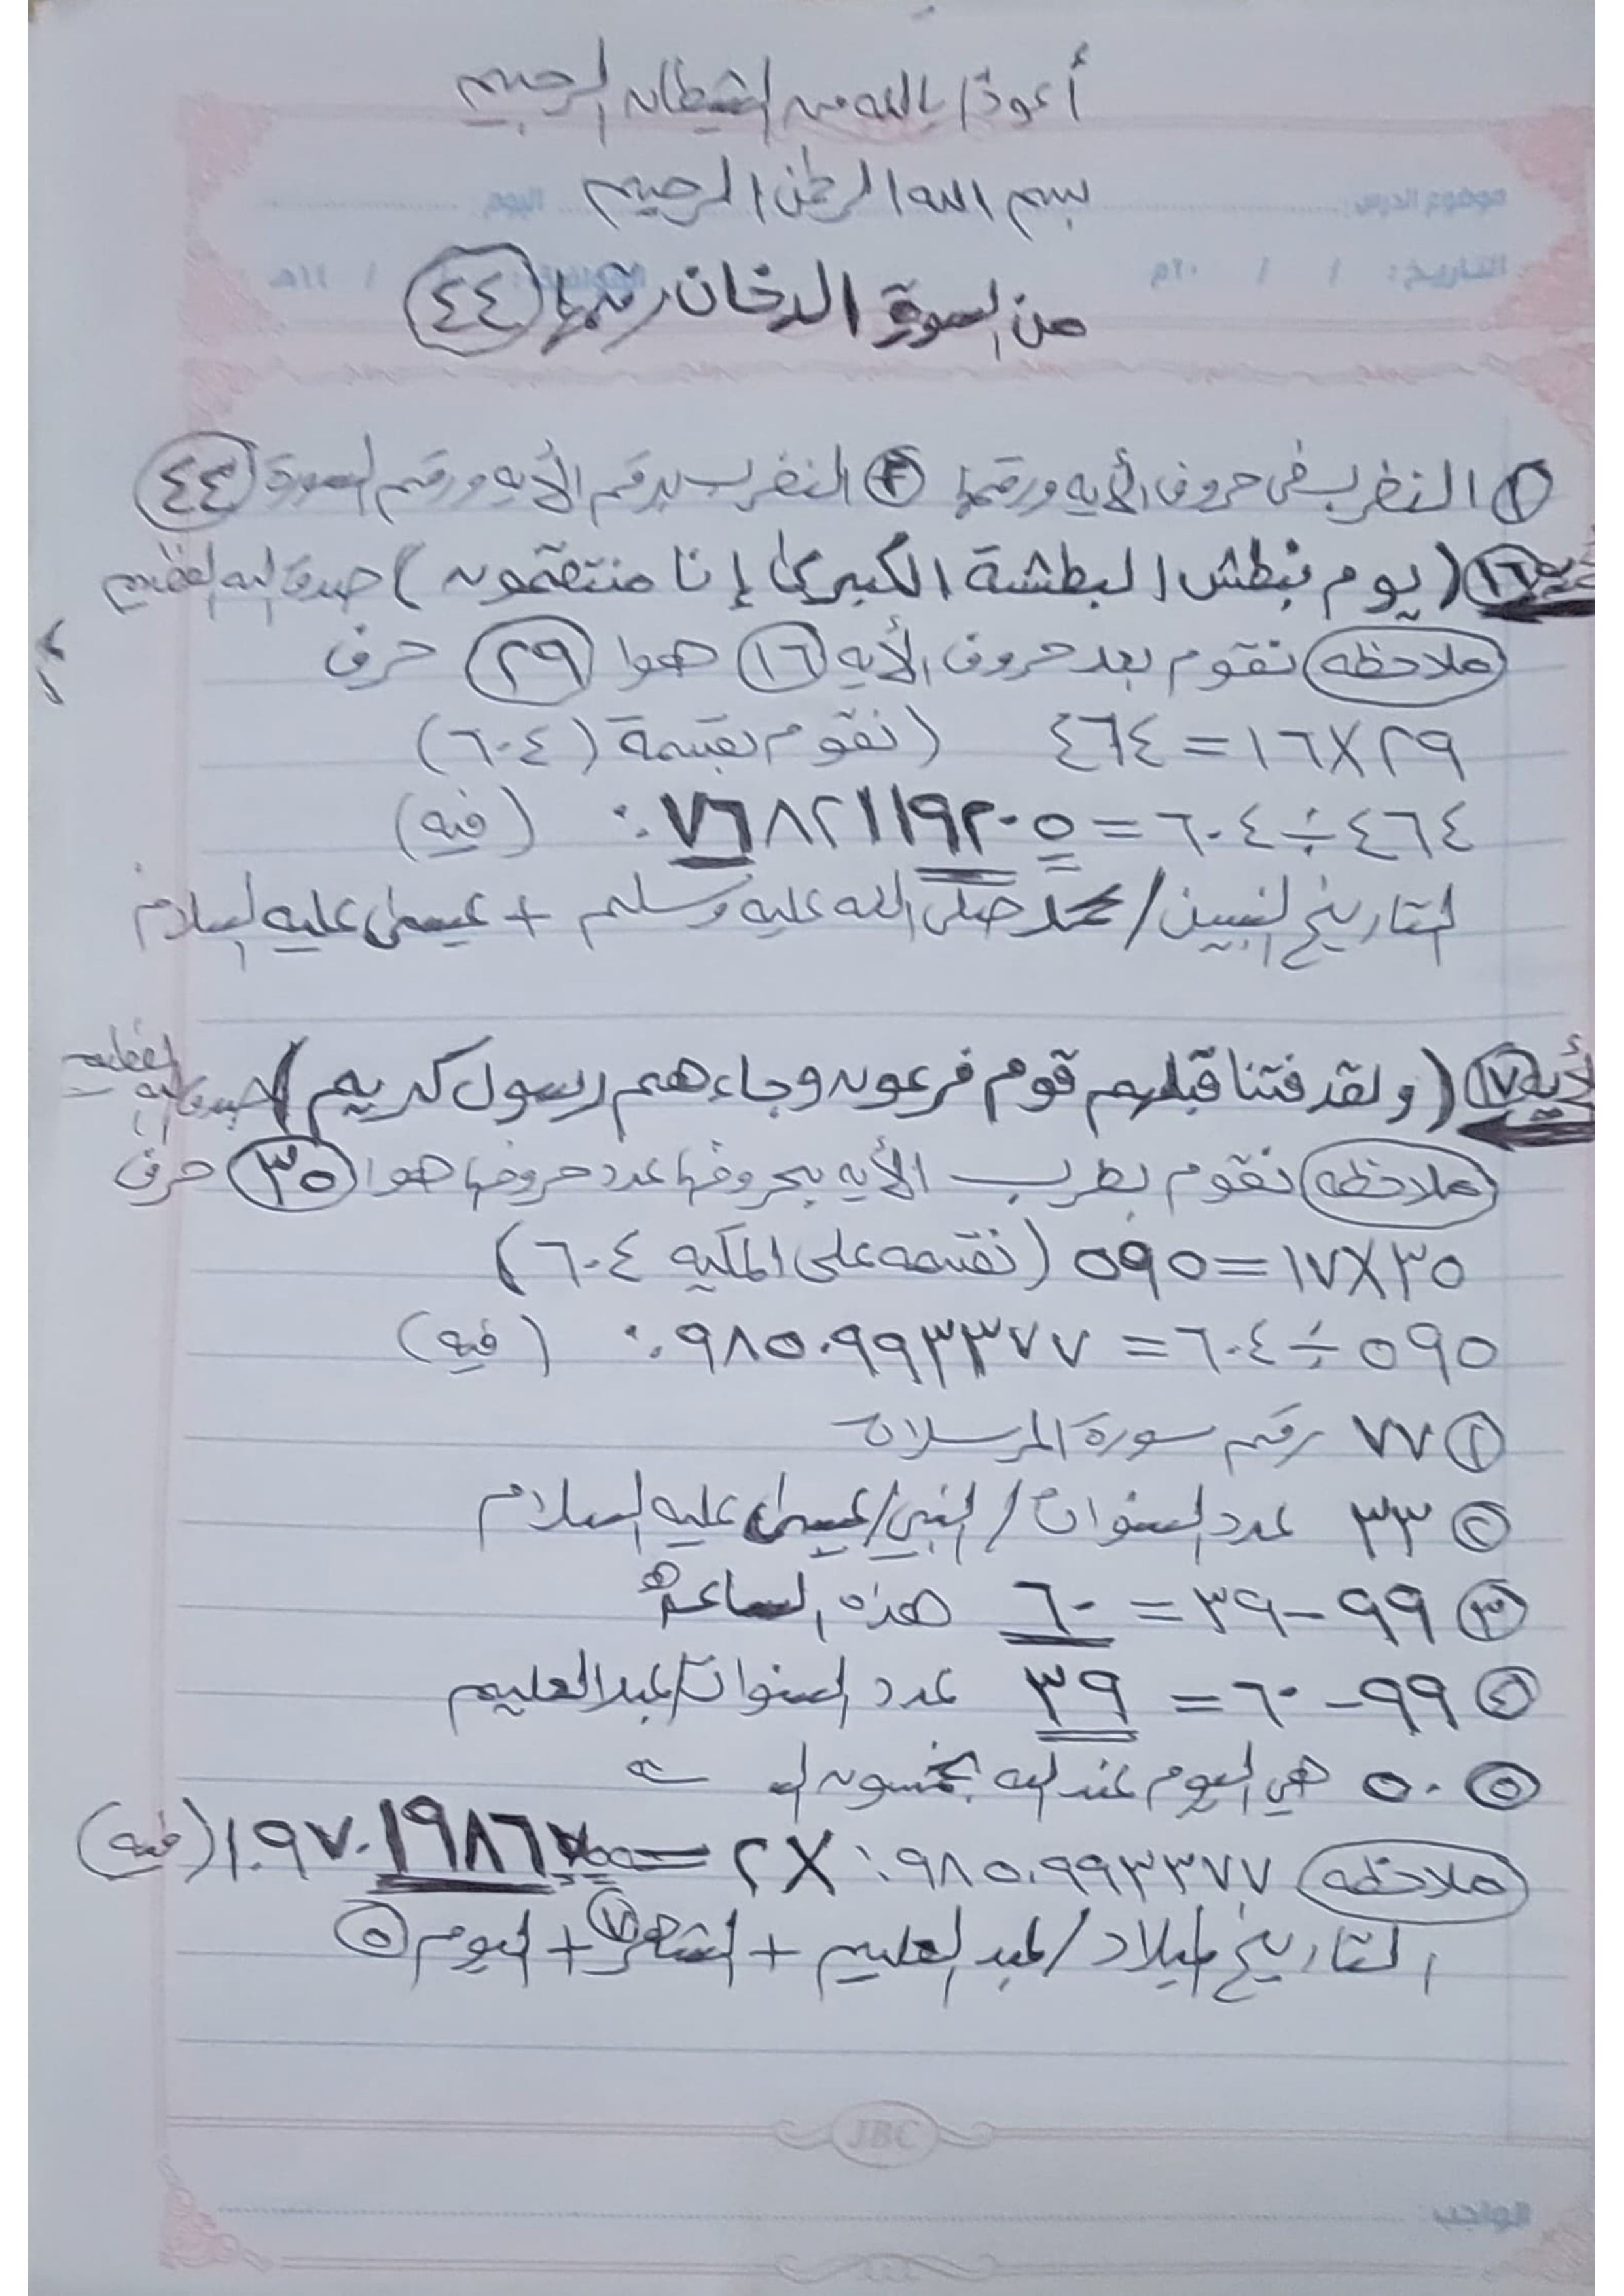 أعوذ بالله من الشيطان الرجيم
بسم الله الرحمن الرحيم
من السورة الدخان رقمها ٤٤
١ النضرب في حروف الأيه ورقمها ٢ النضرب برقم الأيه ورقم السورة ٤٤
أيه ١٦ (يوم نبطش البطشة الكبرى إنا منتقمون) صدق الله العظيم
ملاحظه نقوم بعد حروف الأيه ١٦ هوا ٢٩ حرف
٢٩×١٦=٤٦٤ (نقوم بقسمة ٦٠٤)
٤٦٤÷٦٠٤=٠.٧٦٨٢١١٩٢٠٥ (فيه)
التاريخ النبيين/محمد صلى الله عليه وسلم + عيسى عليه السلام
أيه ١٧ (ولقد فتنا قبلهم قوم فرعون وجاءهم رسول كريم) صدق الله العظيم
ملاحظه نقوم بضرب الأيه بحروفها عدد حروفها هوا ٣٥ حرف
٣٥×١٧=٥٩٥ (نقسمه على المكيه ٦٠٤)
٥٩٥÷٦٠٤=٠.٩٨٥٠٩٩٣٣٧٧ (فيه)
١ ٧٧ رقم سورة المرسلات
٢ ٣٣ عدد السنوات/النبي/عيسى عليه السلام
٣ ٩٩-٣٩=٦٠ هذه الساعه
٤ ٩٩-٦٠=٣٩ عدد السنوات/عبدالعليم
٥ ٥٠ هي اليوم عند الله بخمسون
ملاحظه ٠.٩٨٥٠٩٩٣٣٧٧ ×٢= ١.٩٧٠١٩٨٦٧٥ (فيه)
التاريخ ميلاد/عبد العليم + الشهر ٧ + اليوم ٥
موضوع الدرس: اليوم
التاريخ: / / ٢٠م / / ١٤هـ
JBC
الواجب